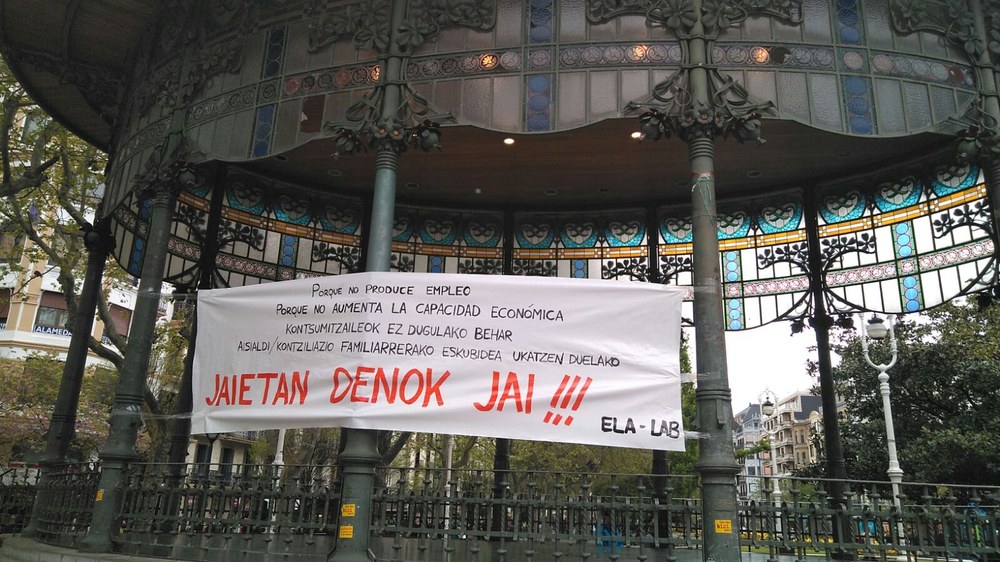 PORQUE NO PRODUCE EMPLEO
PORQUE NO AUMENTA LA CAPACIDAD ECONÓMICA
KONTSUMITZAILEOK EZ DUGULAKO BEHAR
AISIALDI/KONTZILIAZIO FAMILIARRERAKO ESKUBIDEA UKATZEN DUELAKO
JAIETAN DENOK JAI !!!
ELA - LAB
ALAMEDA